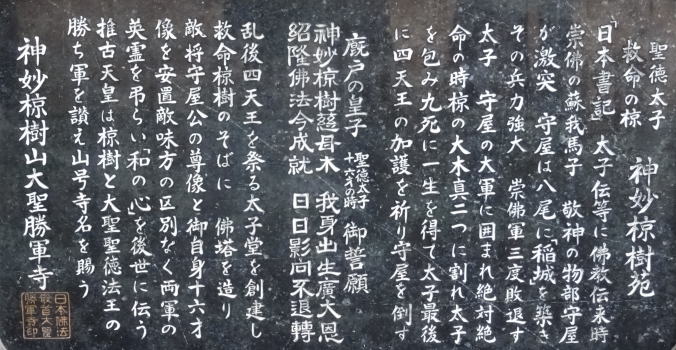 聖徳太子
救命の椋 神妙椋樹苑
「日本書記」 太子伝等に佛教伝来時
崇佛の蘇我馬子 敬神の物部守屋
が激突 守屋は八尾に「稲城」を築き
その兵力強大 崇佛軍三度敗退す
太子 守屋の大軍に囲まれ絶対絶
命の時椋の大木真二つに割れ太子
を包み九死に一生を得て太子最後
に四天王の加護を祈り守屋を倒す
廐戸の皇子 聖徳太子十六才の時 御誓願
神妙椋樹慈母木 我身出生廣大恩
紹隆佛法今成就 日日影向不退轉
乱後四天王を祭る太子堂を創建し
救命椋樹のそばに 佛塔を造り
敵将守屋公の尊像と御自身十六才
像を安置敵味方の区別なく両軍の
英霊を弔らい「和の心」を後世に伝う
推古天皇は椋樹と大聖聖徳法王の
勝ち軍を讃え山号寺名を賜う
神妙椋樹山大聖勝軍寺
日本佛法
最首大聖
勝軍寺印